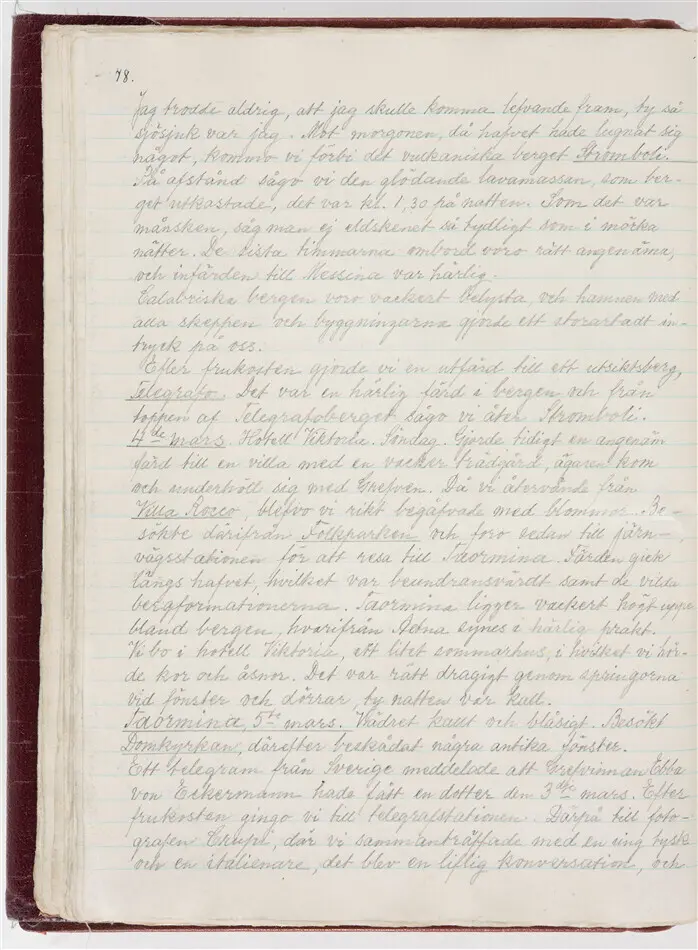 78.
Jag trodde aldrig, att jag skulle komma lefvande fram, ty så
sjösjuk var jag. Mot morgonen, då hafvet hade lugnat sig
något, kommo vi förbi det vulkaniska berget Stromboli.
På afstånd sågo vi den glödande lavamassan, som ber-
get utkastade, det var kl. 1,30 på natten. Som det var
månsken, såg man ej eldskenet så tydligt som i mörka
nätter. De sista timmarna ombord voro rätt angenäma,
och infärden till Messina var härlig.
Calabriska bergen voro vackert belysta, och hamnen med
alla skeppen och byggningarna gjorde ett storartadt in-
tryck på oss.
Efter frukosten gjorde vi en utfärd till ett utsiktsberg,
Telegrafo. Det var en härlig färd i bergen, och från
toppen af Telegrafoberget sågo vi åter Stromboli.
4de mars. Hotell Viktoria. Söndag. Gjorde tidigt en angenäm
färd till en villa med en vacker trädgård, ägaren kom
och underhöll sig med Grefven. Då vi återvände från
Villa Rocco, blefvo vi rikt begåfvade med blommor. Be-
sökte därifrån Folkparken och foro sedan till järn-
vägsstationen för att resa till Taormina. Färden gick
längs hafvet, hvilket var beundransvärdt samt de vilda
bergformationerna. Taormina ligger vackert högt uppe
bland bergen, hvarifrån Ätna synes i härlig prakt.
Vi bo i hotell Viktoria, ett litet sommarhus, i hvilket vi hör-
de kor och åsnor. Det var rätt dragigt genom springorna
vid fönster och dörrar, ty natten var kall.
Taormina, 5te mars. Vädret kallt och blåsigt. Besökt
Domkyrkan, därefter beskådat några antika fönster.
Ett telegram från Sverige meddelade att Grefvinnan Ebba
von Eckermann hade fått en dotter den 3dje mars. Efter
frukosten gingo vi till telegrafstationen. Därpå till foto-
grafen Crupi, där vi sammanträffade med en ung tysk
och en italienare, det blev en liflig konversation, och